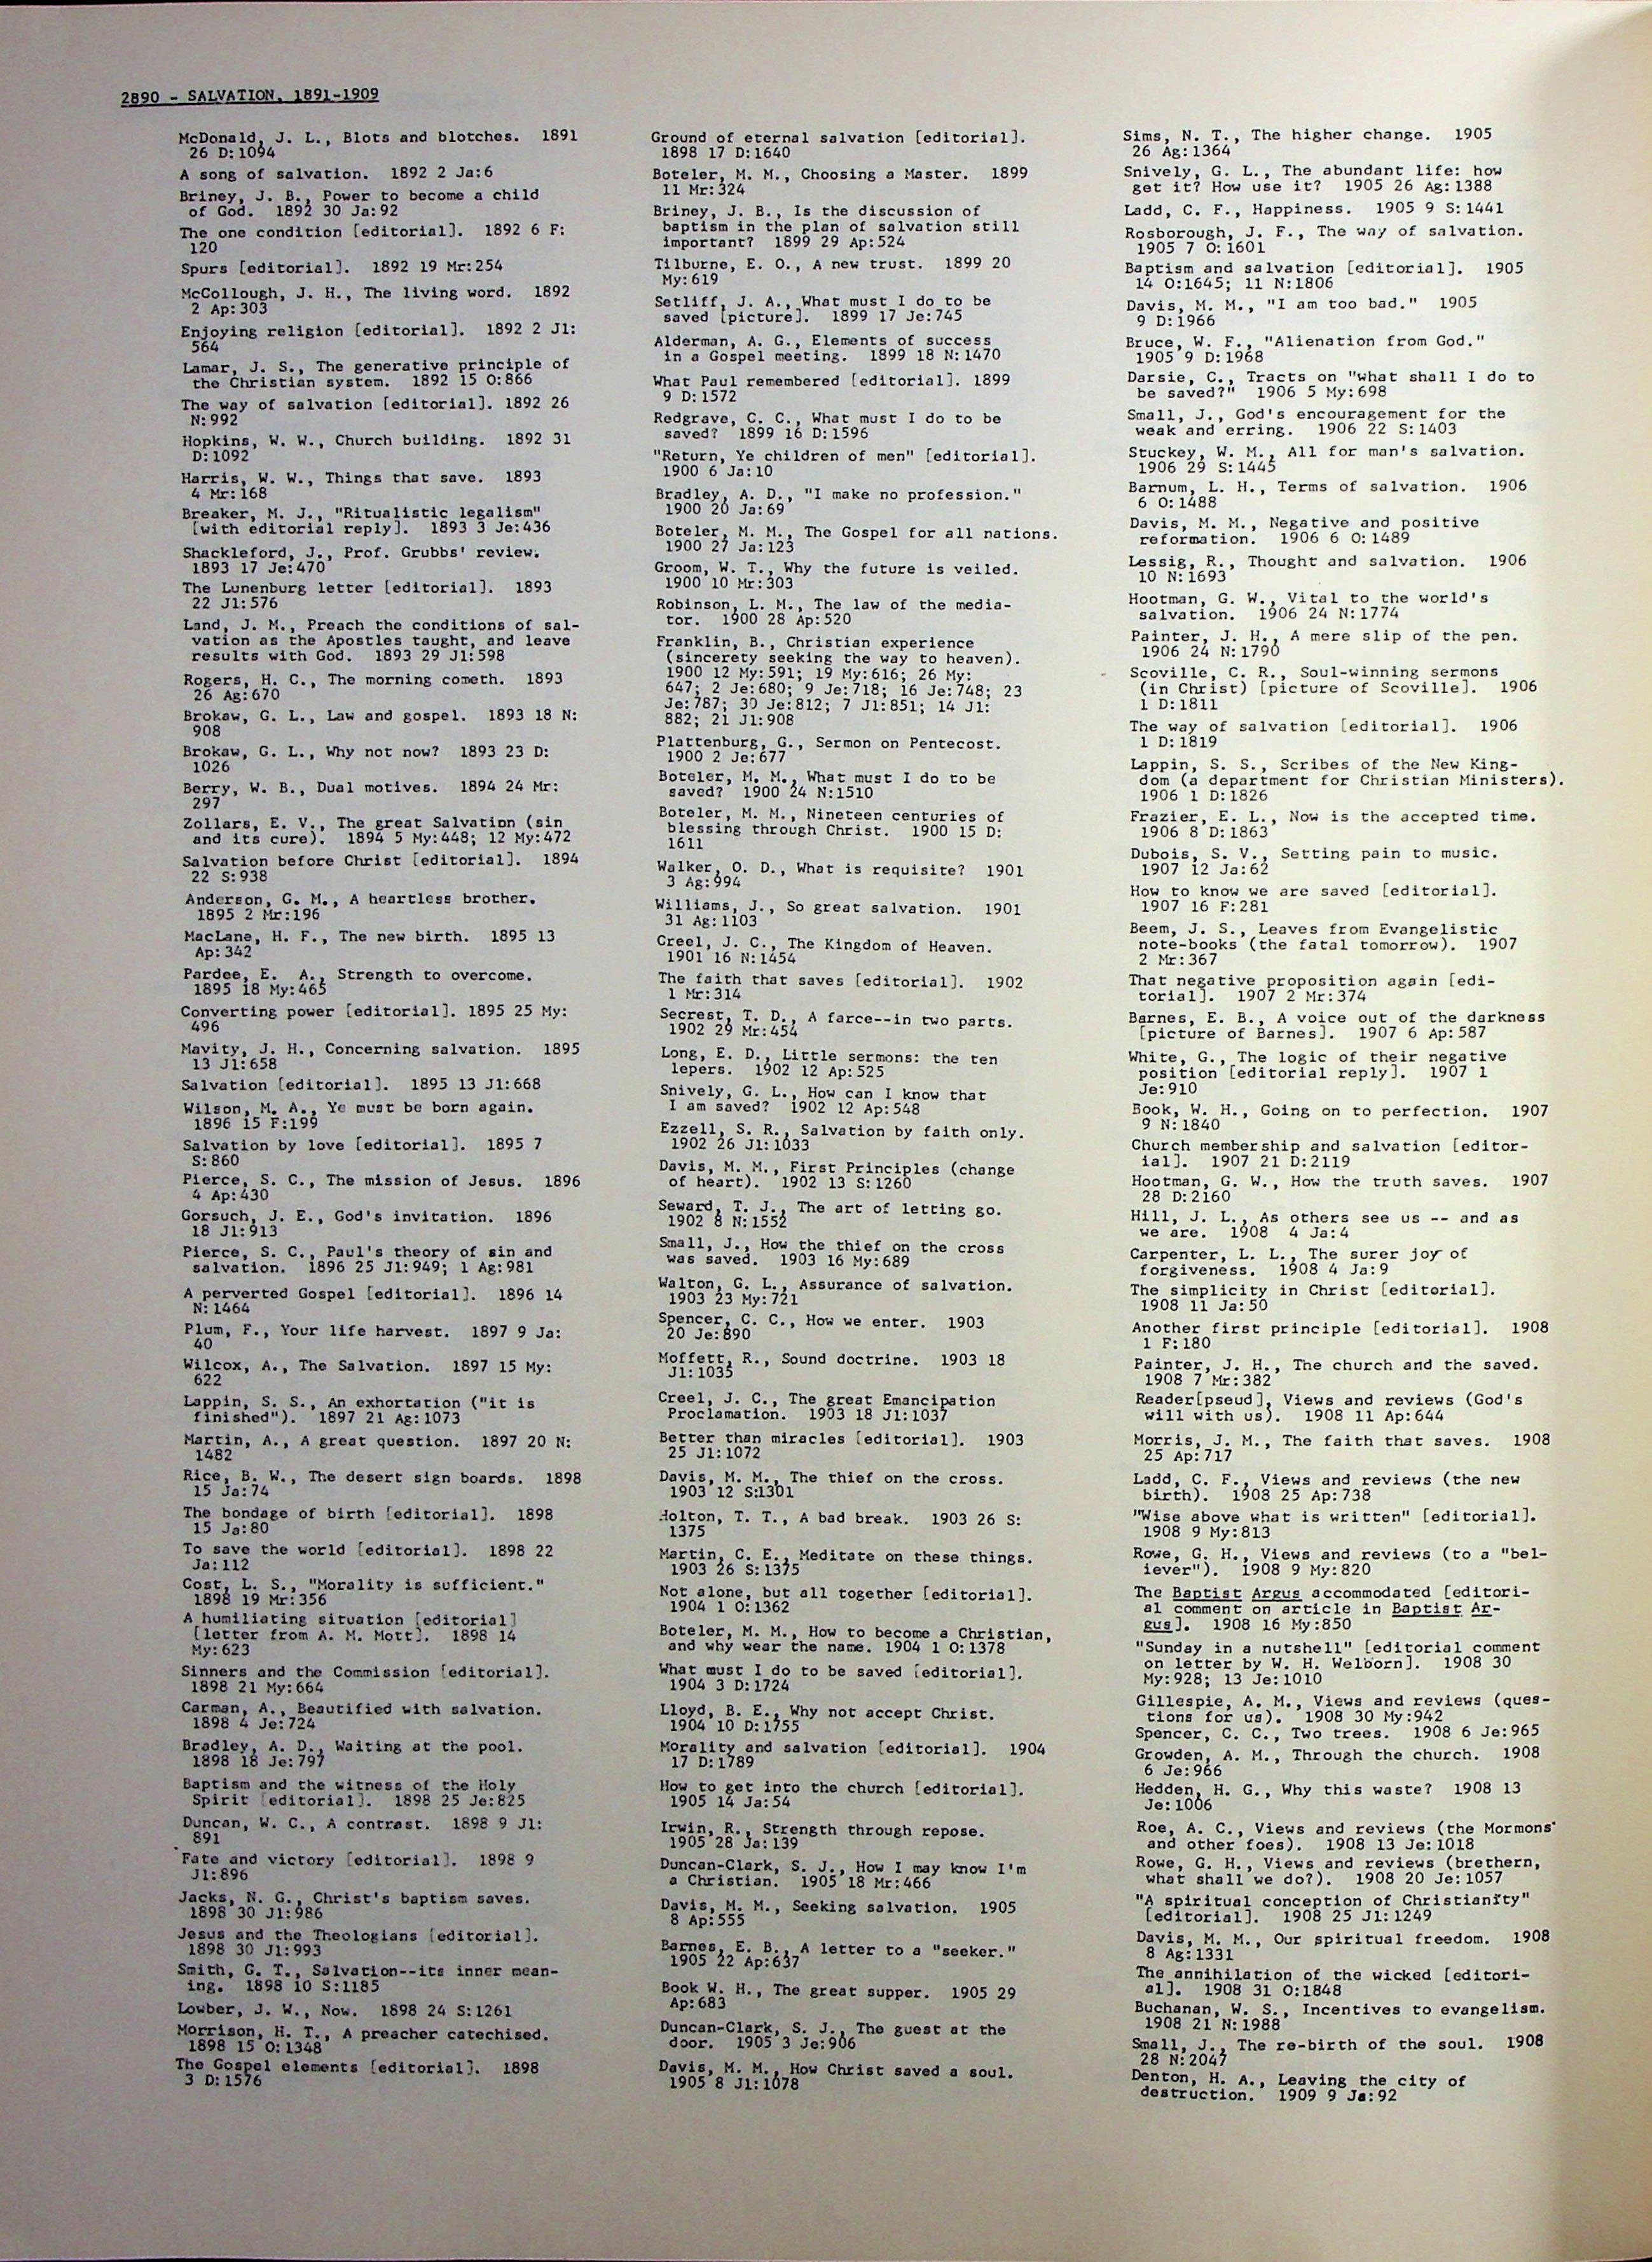 2890 - SALVATION, 1891-1909
McDonald, J. L., Blots and blotches. 1891
26 D:1094
A song of salvation. 1892 2 Ja:6
Briney, J. B., Power to become a child
of God. 1892 30 Ja:92
The one condition [editorial]. 1892 6 F:
120
Spurs [editorial]. 1892 19 Mr:254
McCollough, J. H., The living word. 1892
2 Ap:303
Enjoying religion [editorial]. 1892 2 Jl:
564
Lamar, J. S., The generative principle of
the Christian system. 1892 15 O:866
The way of salvation [editorial]. 1892 26
N:992
Hopkins, W. W., Church building. 1892 31
D:1092
Harris, W. W., Things that save. 1893
4 Mr:168
Breaker, M. J., "Ritualistic legalism"
[with editorial reply]. 1893 3 Je:436
Shackleford, J., Prof. Grubbs' review.
1893 17 Je:470
The Lunenburg letter [editorial]. 1893
22 Jl:576
Land, J. M., Preach the conditions of sal-
vation as the Apostles taught, and leave
results with God. 1893 29 Jl:598
Rogers, H. C., The morning cometh. 1893
26 Ag:670
Brokaw, G. L., Law and gospel. 1893 18 N:
908
Brokaw, G. L., Why not now? 1893 23 D:
1026
Berry, W. B., Dual motives. 1894 24 Mr:
297
Zollars, E. V., The great Salvation (sin
and its cure). 1894 5 My:448; 12 My:472
Salvation before Christ [editorial]. 1894
22 S:938
Anderson, G. M., A heartless brother.
1895 2 Mr:196
MacLane, H. F., The new birth. 1895 13
Ap:342
Pardee, E. A., Strength to overcome.
1895 18 My:465
Converting power [editorial]. 1895 25 My:
496
Mavity, J. H., Concerning salvation. 1895
13 Jl:658
Salvation [editorial]. 1895 13 Jl:668
Wilson, M. A., Ye must be born again.
1896 15 F:199
Salvation by love [editorial]. 1895 7
S:860
Pierce, S. C., The mission of Jesus. 1896
4 Ap:430
Gorsuch, J. E., God's invitation. 1896
18 Jl:913
Pierce, S. C., Paul's theory of sin and
salvation. 1896 25 Jl:949; 1 Ag:981
A perverted Gospel [editorial]. 1896 14
N:1464
Plum, F., Your life harvest. 1897 9 Ja:
40
Wilcox, A., The Salvation. 1897 15 My:
622
Lappin, S. S., An exhortation ("it is
finished"). 1897 21 Ag:1073
Martin, A., A great question. 1897 20 N:
1482
Rice, B. W., The desert sign boards. 1898
15 Ja:74
The bondage of birth [editorial]. 1898
15 Ja:80
To save the world [editorial]. 1898 22
Ja:112
Cost, L. S., "Morality is sufficient."
1898 19 Mr:356
A humiliating situation [editorial]
[letter from A. M. Mott]. 1898 14
My:623
Sinners and the Commission [editorial].
1898 21 My:664
Carman, A., Beautified with salvation.
1898 4 Je:724
Bradley, A. D., Waiting at the pool.
1898 18 Je:797
Baptism and the witness of the Holy
Spirit [editorial]. 1898 25 Je:825
Duncan, W. C., A contrast. 1898 9 Jl:
891
Fate and victory [editorial]. 1898 9
Jl:896
Jacks, N. G., Christ's baptism saves.
1898 30 Jl:986
Jesus and the Theologians [editorial].
1898 30 Jl:993
Smith, G. T., Salvation--its inner mean-
ing. 1898 10 S:1185
Lowber, J. W., Now. 1898 24 S:1261
Morrison, H. T., A preacher catechised.
1898 15 O:1348
The Gospel elements [editorial]. 1898
3 D:1576
Ground of eternal salvation [editorial].
1898 17 D:1640
Boteler, M. M., Choosing a Master. 1899
11 Mr:324
Briney, J. B., Is the discussion of
baptism in the plan of salvation still
important? 1899 29 Ap:524
Tilburne, E. O., A new trust. 1899 20
My:619
Setliff, J. A., What must I do to be
saved [picture]. 1899 17 Je:745
Alderman, A. G., Elements of success
in a Gospel meeting. 1899 18 N:1470
What Paul remembered [editorial]. 1899
9 D:1572
Redgrave, C. C., What must I do to be
saved? 1899 16 D:1596
"Return, Ye children of men" [editorial].
1900 6 Ja:10
Bradley, A. D., "I make no profession."
1900 20 Ja:69
Boteler, M. M., The Gospel for all nations.
1900 27 Ja:123
Groom, W. T., Why the future is veiled.
1900 10 Mr:303
Robinson, L. M., The law of the media-
tor. 1900 28 Ap:520
Franklin, B., Christian experience
(sincerety seeking the way to heaven).
1900 12 My:591; 19 My:616; 26 My:
647; 2 Je:680; 9 Je:718; 16 Je:748; 23
Je:787; 30 Je:812; 7 Jl:851; 14 Jl:
882; 21 Jl:908
Plattenburg, G., Sermon on Pentecost.
1900 2 Je:677
Boteler, M. M., What must I do to be
saved? 1900 24 N:1510
Boteler, M. M., Nineteen centuries of
blessing through Christ. 1900 15 D:
1611
Walker, O. D., What is requisite? 1901
3 Ag:994
Williams, J., So great salvation. 1901
31 Ag:1103
Creel, J. C., The Kingdom of Heaven.
1901 16 N:1454
The faith that saves [editorial]. 1902
1 Mr:314
Secrest, T. D., A farce--in two parts.
1902 29 Mr:454
Long, E. D., Little sermons: the ten
lepers. 1902 12 Ap:525
Snively, G. L., How can I know that
I am saved? 1902 12 Ap:548
Ezzell, S. R., Salvation by faith only.
1902 26 Jl:1033
Davis, M. M., First Principles (change
of heart). 1902 13 S:1260
Seward, T. J., The art of letting go.
1902 8 N:1552
Small, J., How the thief on the cross
was saved. 1903 16 My:689
Walton, G. L., Assurance of salvation.
1903 23 My:721
Spencer, C. C., How we enter. 1903
20 Je:890
Moffett, R., Sound doctrine. 1903 18
Jl:1035
Creel, J. C., The great Emancipation
Proclamation. 1903 18 Jl:1037
Better than miracles [editorial]. 1903
25 Jl:1072
Davis, M. M., The thief on the cross.
1903 12 S:1301
Holton, T. T., A bad break. 1903 26 S:
1375
Martin, C. E., Meditate on these things.
1903 26 S:1375
Not alone, but all together [editorial].
1904 1 O:1362
Boteler, M. M., How to become a Christian,
and why wear the name. 1904 1 O:1378
What must I do to be saved [editorial].
1904 3 D:1724
Lloyd, B. E., Why not accept Christ.
1904 10 D:1755
Morality and salvation [editorial]. 1904
17 D:1789
How to get into the church [editorial].
1905 14 Ja:54
Irwin, R., Strength through repose.
1905 28 Ja:139
Duncan-Clark, S. J., How I may know I'm
a Christian. 1905 18 Mr:466
Davis, M. M., Seeking salvation. 1905
8 Ap:555
Barnes, E. B., A letter to a "seeker."
1905 22 Ap:637
Book W. H., The great supper. 1905 29
Ap:683
Duncan-Clark, S. J., The guest at the
door. 1905 3 Je:906
Davis, M. M., How Christ saved a soul.
1905 8 Jl:1078
Sims, N. T., The higher change. 1905
26 Ag:1364
Snively, G. L., The abundant life: how
get it? How use it? 1905 26 Ag:1388
Ladd, C. F., Happiness. 1905 9 S:1441
Rosborough, J. F., The way of salvation.
1905 7 O:1601
Baptism and salvation [editorial]. 1905
14 O:1645; 11 N:1806
Davis, M. M., "I am too bad." 1905
9 D:1966
Bruce, W. F., "Alienation from God."
1905 9 D:1968
Darsie, C., Tracts on "what shall I do to
be saved?" 1906 5 My:698
Small, J., God's encouragement for the
weak and erring. 1906 22 S:1403
Stuckey, W. M., All for man's salvation.
1906 29 S:1445
Barnum, L. H., Terms of salvation. 1906
6 O:1488
Davis, M. M., Negative and positive
reformation. 1906 6 O:1489
Lessig, R., Thought and salvation. 1906
10 N:1693
Hootman, G. W., Vital to the world's
salvation. 1906 24 N:1774
Painter, J. H., A mere slip of the pen.
1906 24 N:1790
Scoville, C. R., Soul-winning sermons
(in Christ) [picture of Scoville]. 1906
1 D:1811
The way of salvation [editorial]. 1906
1 D:1819
Lappin, S. S., Scribes of the New King-
dom (a department for Christian Ministers).
1906 1 D:1826
Frazier, E. L., Now is the accepted time.
1906 8 D:1863
Dubois, S. V., Setting pain to music.
1907 12 Ja:62
How to know we are saved [editorial].
1907 16 F:281
Beem, J. S., Leaves from Evangelistic
note-books (the fatal tomorrow). 1907
2 Mr:367
That negative proposition again [edi-
torial]. 1907 2 Mr:374
Barnes, E. B., A voice out of the darkness
[picture of Barnes]. 1907 6 Ap:587
White, G., The logic of their negative
position [editorial reply]. 1907 1
Je:910
Book, W. H., Going on to perfection. 1907
9 N:1840
Church membership and salvation [editor-
ial]. 1907 21 D:2119
Hootman, G. W., How the truth saves. 1907
28 D:2160
Hill, J. L., As others see us -- and as
we are. 1908 4 Ja:4
Carpenter, L. L., The surer joy of
forgiveness. 1908 4 Ja:9
The simplicity in Christ [editorial].
1908 11 Ja:50
Another first principle [editorial]. 1908
1 F:180
Painter, J. H., The church and the saved.
1908 7 Mr:382
Reader[pseud], Views and reviews (God's
will with us). 1908 11 Ap:644
Morris, J. M., The faith that saves. 1908
25 Ap:717
Ladd, C. F., Views and reviews (the new
birth). 1908 25 Ap:738
"Wise above what is written" [editorial].
1908 9 My:813
Rowe, G. H., Views and reviews (to a "bel-
iever"). 1908 9 My:820
The Baptist Argus accommodated [editori-
al comment on article in Baptist Ar-
gus]. 1908 16 My:850
"Sunday in a nutshell" [editorial comment
on letter by W. H. Welborn]. 1908 30
My:928; 13 Je:1010
Gillespie, A. M., Views and reviews (ques-
tions for us). 1908 30 My:942
Spencer, C. C., Two trees. 1908 6 Je:965
Growden, A. M., Through the church. 1908
6 Je:966
Hedden, H. G., Why this waste? 1908 13
Je:1006
Roe, A. C., Views and reviews (the Mormons'
and other foes). 1908 13 Je:1018
Rowe, G. H., Views and reviews (brethern,
what shall we do?). 1908 20 Je:1057
"A spiritual conception of Christianity"
[editorial]. 1908 25 Jl:1249
Davis, M. M., Our spiritual freedom. 1908
8 Ag:1331
The annihilation of the wicked [editori-
al]. 1908 31 O:1848
Buchanan, W. S., Incentives to evangelism.
1908 21 N:1988
Small, J., The re-birth of the soul. 1908
28 N:2047
Denton, H. A., Leaving the city of
destruction. 1909 9 Ja:92